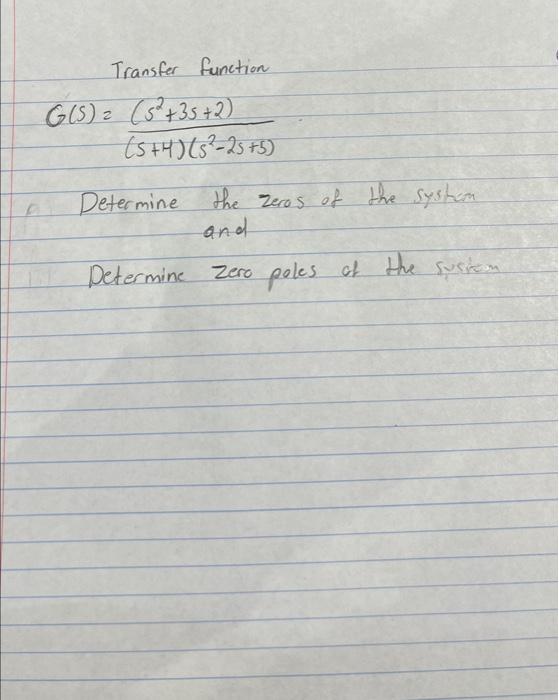 Transfer function
G(s) = (s²+3s+2)
(s+4)(s²-2s+5)
Determine the zeros of the system
and
Determine zero poles of the system